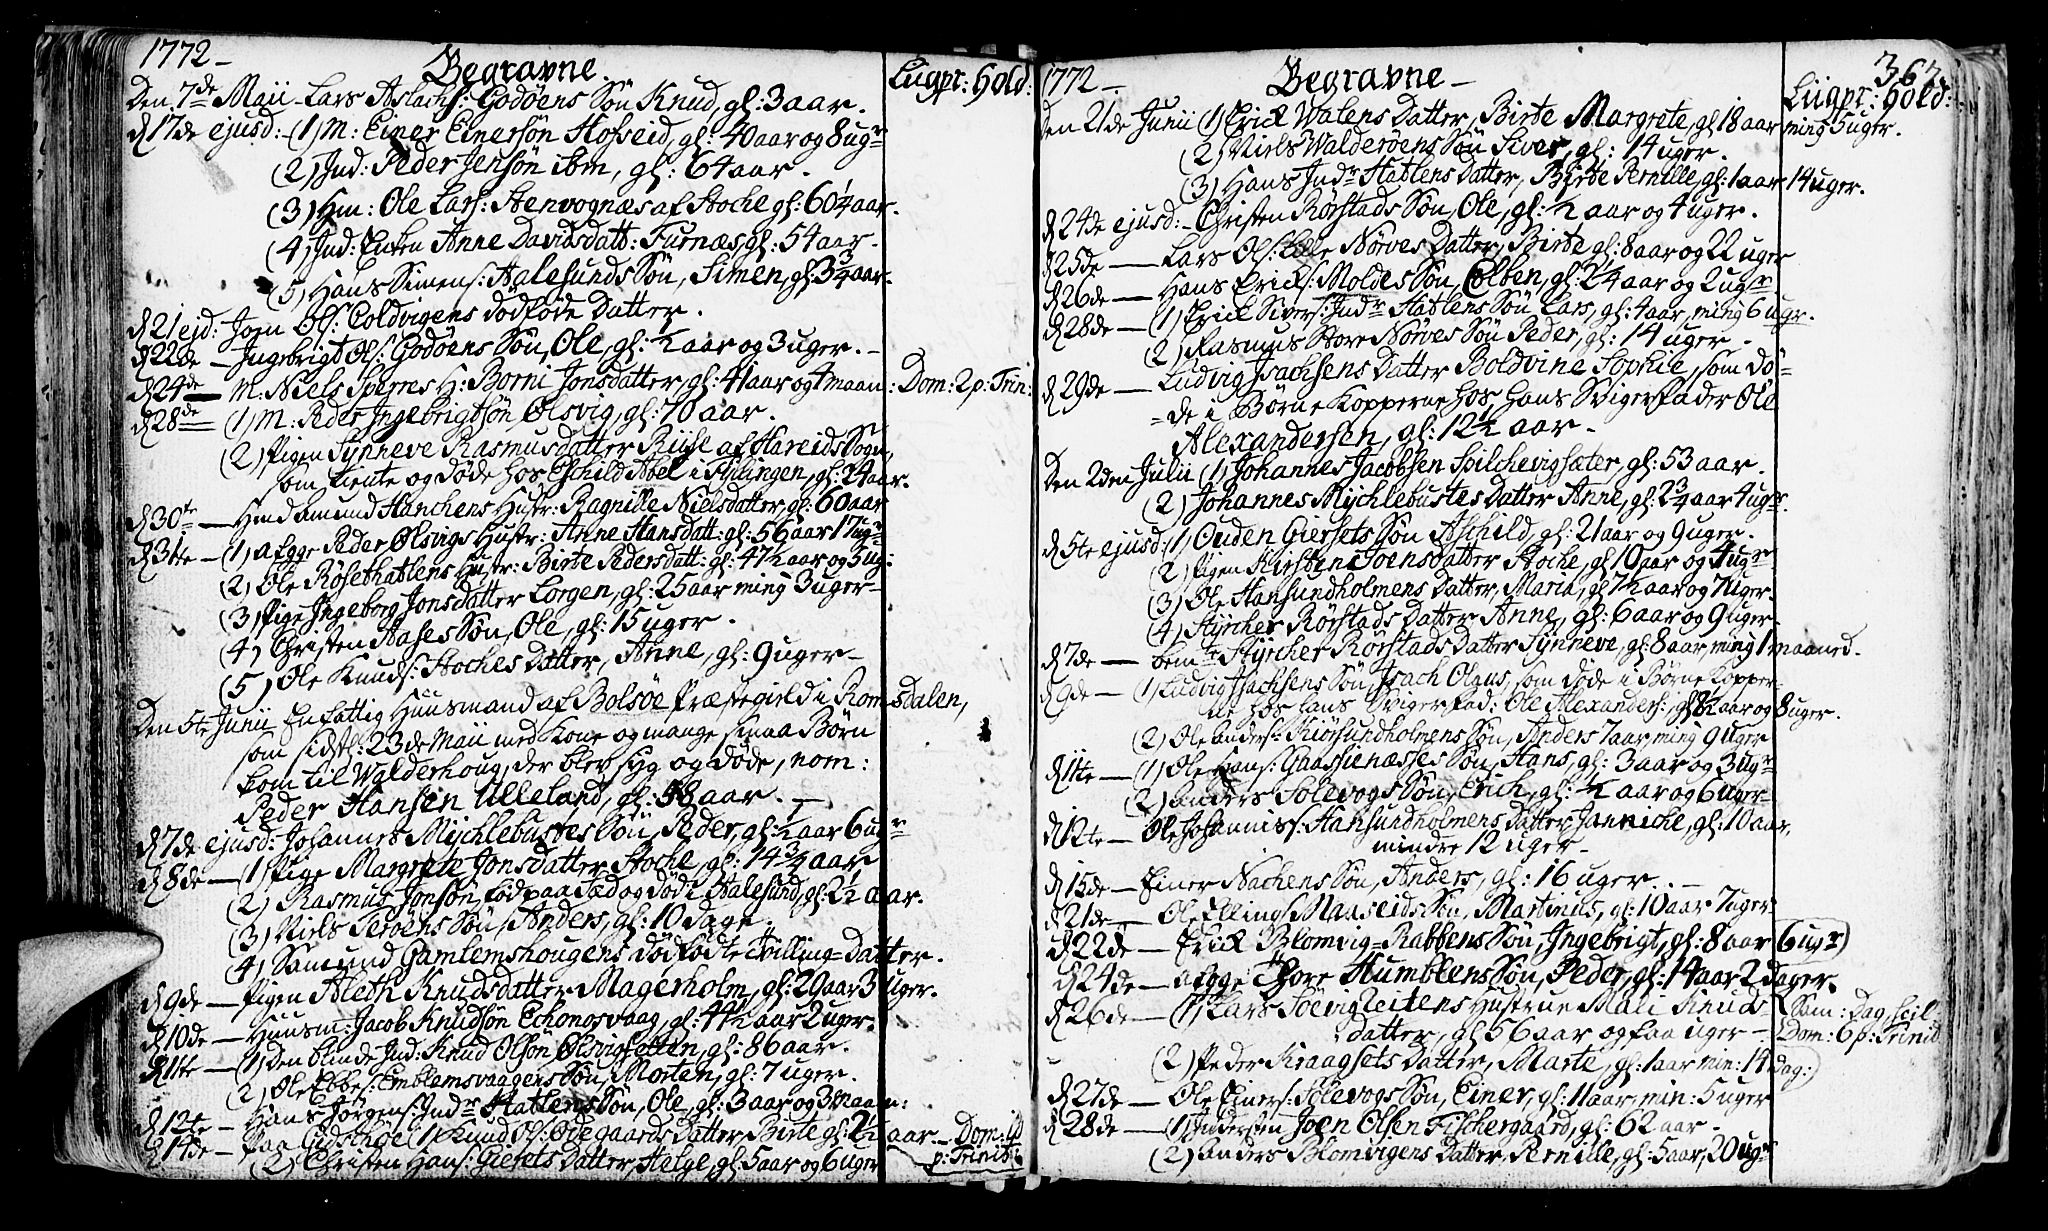 1772 -
Begravne
Liigpr: hold:
Den 7de Maii - Lars Aslachs: Godøens Søn Knud, gl: 3 aar.
d 17de ejusd: - (1) M: Einer Einersøn Hofseid, gl: 40 aar og 8 ugr
(2) Ind: Peder Jensøn ibm, gl: 64 aar.
(3) Hm: Ole Lars: Stenvognæs af Stoche gl: 60¼ aar.
(4) Ind: Enken Anne Davidsdatt: Furnæs gl: 54 aar.
(5) Hans Simens: Aalesunds Søn, Simen, gl: 3¾ aar.
d 21 ejd: Joen Ols: Coldvigens dødføde Datter.
d 22de - Ingebrigt Ols: Godøens Søn, Ole, gl: ½ aar og 3 uger. -
d 24de - M: Niels Sperres H: Borni Jonsdatter, gl: 41 aar og 4 maan: Dom: 2 p: Trin:
d 28de (1) M: Peder Ingebrigtsøn Olsvig, gl: 70 aar.
(2) Pigen Synneve Rasmusdatter Riise af Hareids Sogn,
som tiente og døde hos Eschild Abel i Flylingen, gl: 24 aar.
d 30te - Hmd Amund Hanchens Hustr: Ragnilde Nielsdatter, gl: 60 aar
d 31te - (1) afgge Peder Olsvigs Hustr: Anne Hansdatt: gl: 56 aar 17 ugr
(2) Ole Røsethatlens Hustr: Birte Pedersdatt: gl: 47½ aar og 3 ug:
(3) Pige Ingeborg Jonsdatter Lorgen, gl: 25 aar ming 3 uger -
(4) Christen Aases Søn, Ole, gl: 15 uger.
(5) Ole Knuds: Stoches Datter, Anne, gl: 9 uger -
Den 5te Junii En fattig Huusmand af Bolsøe Præstegield i Romsdalen,
som sidstl: 23de Maii med Kone og mange smaa Børn
kom til Walderhoug, der blev syg og døde, nom:
Peder Hansen Ulleland, gl: 58 aar. -
d 7de ejusd: Johannes Mychlebustes Søn, Peder, gl: ½ aar 6 ugr
d 8de - (1) Pige Margrete Jonsdatter Stoche, gl: 14¾ aar
(2) Rasmus Jonsøn, fød paa Sæd og død i Aalesund, gl: 2½ aar.
(3) Niels Terøens Søn, Anders, gl: 10 dage.
(4) Samund Gamlemshougens dødfødte Tvilling-Datter.
d 9de - Pigen Aleth Knudsdatter Magerholm, gl: 29 aar 3 uger.
d 10de - Huusm: Jacob Knudsøn Echonosvaag, gl: 44½ aar 2 uger.
d 11te - (1) Den blinde Ind: Knud Olsøn Olsvigsetten, gl: 86 aar.
(2) Ole Ebbes: Emblemsvaagens Søn, Morten, gl: 7 uger.
d 12te - Hans Jørgens: Indr Hatlens Søn, Ole, gl: 3 aar og 3 maan:
d 14de - Paa Gidschøe (1) Knud Ols: Ødegaards Datter, Birte gl: 2½ aar - Dom: 4
(2) Christen Hans: Giesets Datter, Helge, gl: 5 aar og 6 uger p: Trinit:
1772 -
Begravne -
367
Liigpr: hold:
Den 21de Junii (1) Erick Walens Datter, Birte Margrete, gl 18 aar ming 5 uger.
(2) Niels Walderøens Søn Siver, gl: 14 uger.
(3) Hans Indr Hatlens Datter, Birte Pernille, gl: 1 aar 14 uger.
d 24de ejusd: - Christen Rørstads Søn, Ole, gl: ½ aar og 4 uger.
d 25de - Lars Ols: Nørves Datter, Birte gl: 8 aar og 22 uger
d 26de - Hans Ericks: Moldes Søn, Colben, gl: 2¼ aar og 2 ugr
d 28de - (1) Erick Sivers: Indr Hatlens Søn Lars, gl: 4 aar, ming 6 ugr.
(2) Rasmus Store Nørves Søn Peder, gl: 14 uger.
d 29de - Ludvig Isachsens Datter Boldvine Sophie, som dø-
de i Børne Kopperne hos hans Svigerfader Ole
Alexandersen, gl: 12½ aar.
Den 2den Julii (1) Johannes Jacobsen Spilchevigsæter, gl: 53 aar.
(2) Johannes Mychlebustes Datter Anne, gl: 2¾ aar 4 ugr.
d 5te ejusd (1) Ouden Giersets Søn Aschild, gl: 21 aar og 9 uger.
(2) Pigen Kirsten Joensdatter Stoche, gl 10 aar og 4 ugr
(3) Ole Hansundholmens Datter, Maria, gl 7½ aar og 7 uger.
(4) Styrcher Rørstads Datter Anne, gl: 6 aar og 9 uger -
d 7de - bemte Styrcher Rørstads Datter Synneve, gl: 8 aar, ming 1 maaned.
d 9de - (1) Ludvig Isachsens Søn, Isach Olaus, som døde i Børne Kopper-
ne hos hans Svigerfad: Ole Alexanders: gl: 8½ aar og 8 uger.
(2) Ole Anders: Kiørsundholmens Søn, Anders 7 aar, ming 9 uger
d 11te - (1) Ole Hans: Gaassienæsses Søn, Hans, gl: 3 aar og 3 ugr
(2) Anders Solevogs Søn, Erich, gl: ½ aar og 6 uger -
d 12te - Ole Johannis: Hansundholmens Datter Jannicke, gl: 10 aar,
mindre 12 uger -
d 15de - Einer Nachens Søn, Anders, gl: 16 uger. -
d 21de - Ole Ellings: Maaseids Søn, Martinus, gl: 10 aar 7 uger
d 22de - Erick Blomvig-Rabbens Søn, Ingebrigt, gl: 8 aar 6 ugr)
d 24de - afgge Thore Humblens Søn, Peder, gl: 14 aar 2 Dager.
d 26de - (1) Lars Søevigleitens Hustrue Mali Knuds-
datter, gl: 56 aar og faa uger - Sam: Dag, scil: Dom: 6 p: Trinit
(2) Peder Kraagsets Datter, Marte, gl: 1 aar min: 14 Dag:)
d 27de - Ole Einers: Solevogs Søn, Einer, gl: 11 aar, min: 5 uger
d 28de - (1) Indersten Joen Olsen Fischergaard, gl: 62 aar.
(2) Anders Blomvigens Datter, Pernille, gl: 5 aar, 20 ugr